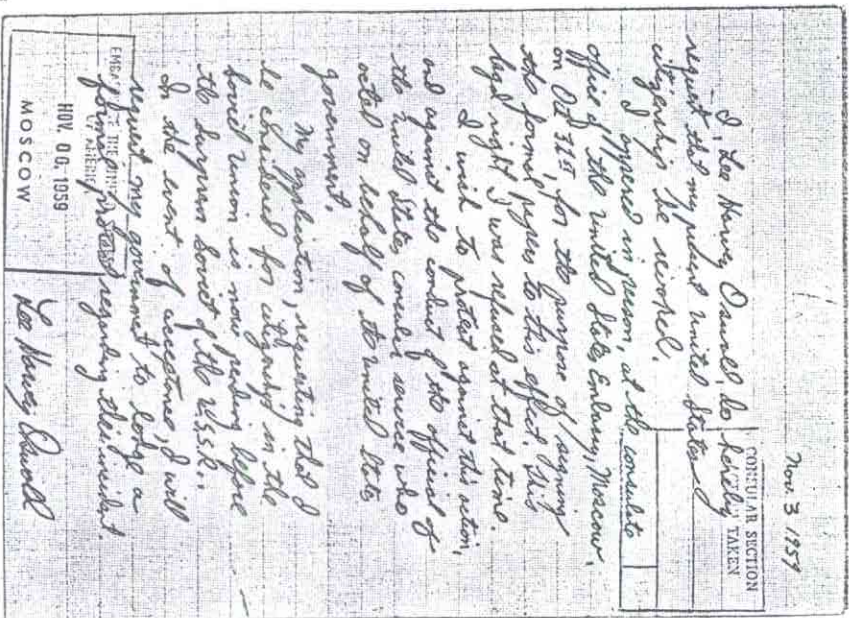 Nov. 3 1959
CONSULAR SECTION
TAKEN
I, Lee Harvey Oswald, do hereby
request that my present united States
citizenship be revoked.
I appered in person, at the consulate
office of the United States Embassy, Moscow,
on Oct 31st, for the purpose of signing
the formal papers to this effect. This
legal right I was refused at that time.
I wish to protest against this action,
and against the conduct of the official of
the United States consular service who
acted on behalf of the united States
government.
My application, requesting that I
be considered for citizenship in the
Soviet Union is now pending before
the Surprem Soviet of the U.S.S.R..
In the event of acceptance, I will
request my government to lodge a
formal protest regarding this incident.
Lee Harvey Oswald
OF AMERICA
NOV. 06. 1959
MOSCOW